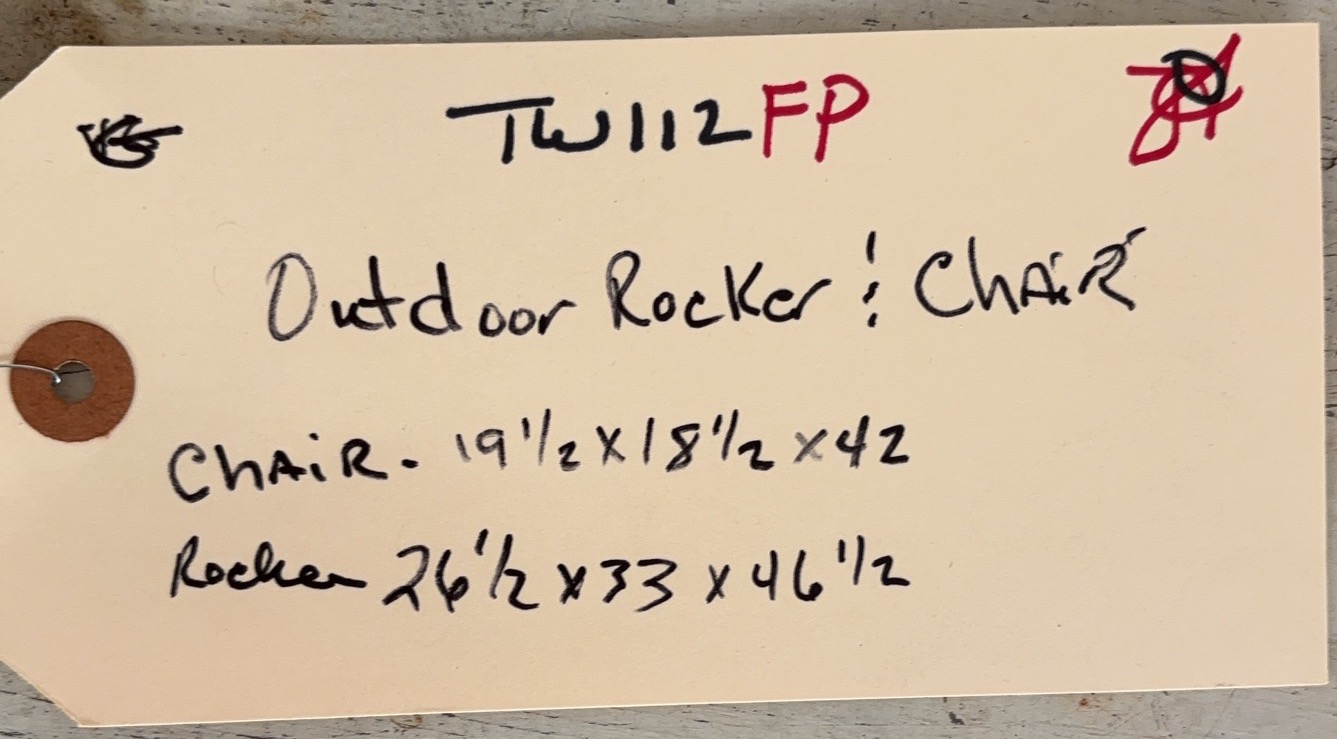 TW112FP
Outdoor Rocker & Chair
Chair. 19 1/2 x 18 1/2 x 42
Rocker 26 1/2 x 33 x 46 1/2